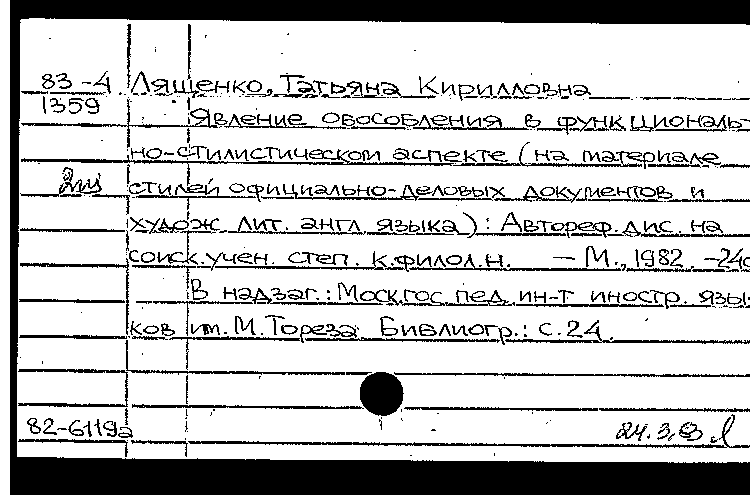 83-4 Лященко, Татьяна Кирилловна
1359 Явление обособления в функциональ-
но-стилистическом аспекте (на материале
стилей официально-деловых документов и
худож. лит. англ. языка): Автореф. дис. на
соиск. учен. степ. к.филол.н. — М., 1982. -24с
В надзаг.: Моск.гос.пед. ин-т иностр. язы-
ков им. М. Тореза. Библиогр.: с.24.
82-6119а 24.3.83